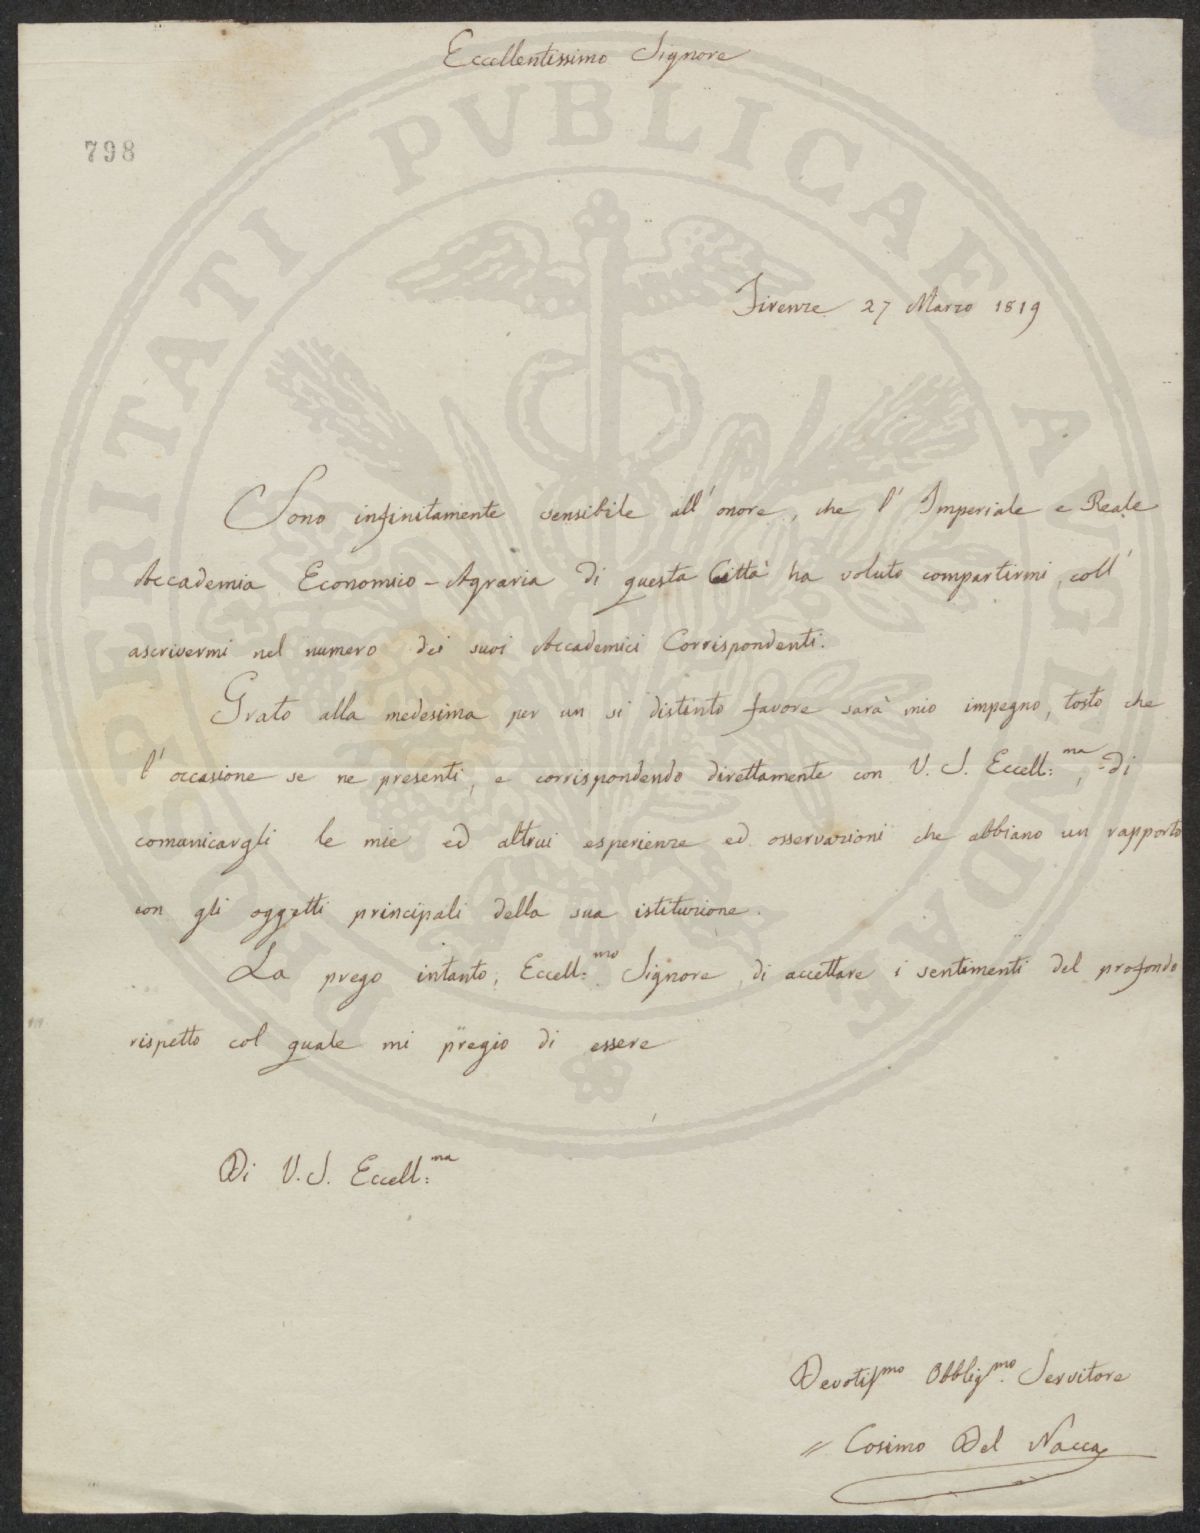 Eccellentissimo Signore
798
Firenze 27 Marzo 1819
Sono infinitamente sensibile all' onore, che l' Imperiale e Reale
Accademia Economico-Agraria di questa Città ha voluto compartirmi, coll'
ascrivermi nel numero dei suoi Accademici Corrispondenti.
Grato alla medesima per un si distinto favore sarà mio impegno, tosto che
l' occasione se ne presenti, e corrispondendo direttamente con V. S. Eccell:ma, di
comunicargli le mie ed altrui esperienze ed osservazioni che abbiano un rapporto
con gli oggetti principali della sua istituzione.
La prego intanto, Eccell:mo Signore, di accettare i sentimenti del profondo
rispetto col quale mi pregio di essere
Di V. S. Eccell:ma
Devotismo Obbligmo. Servitore
Cosimo Del Nacca
PROSPERITATI PVBLICAE AVGENDAE